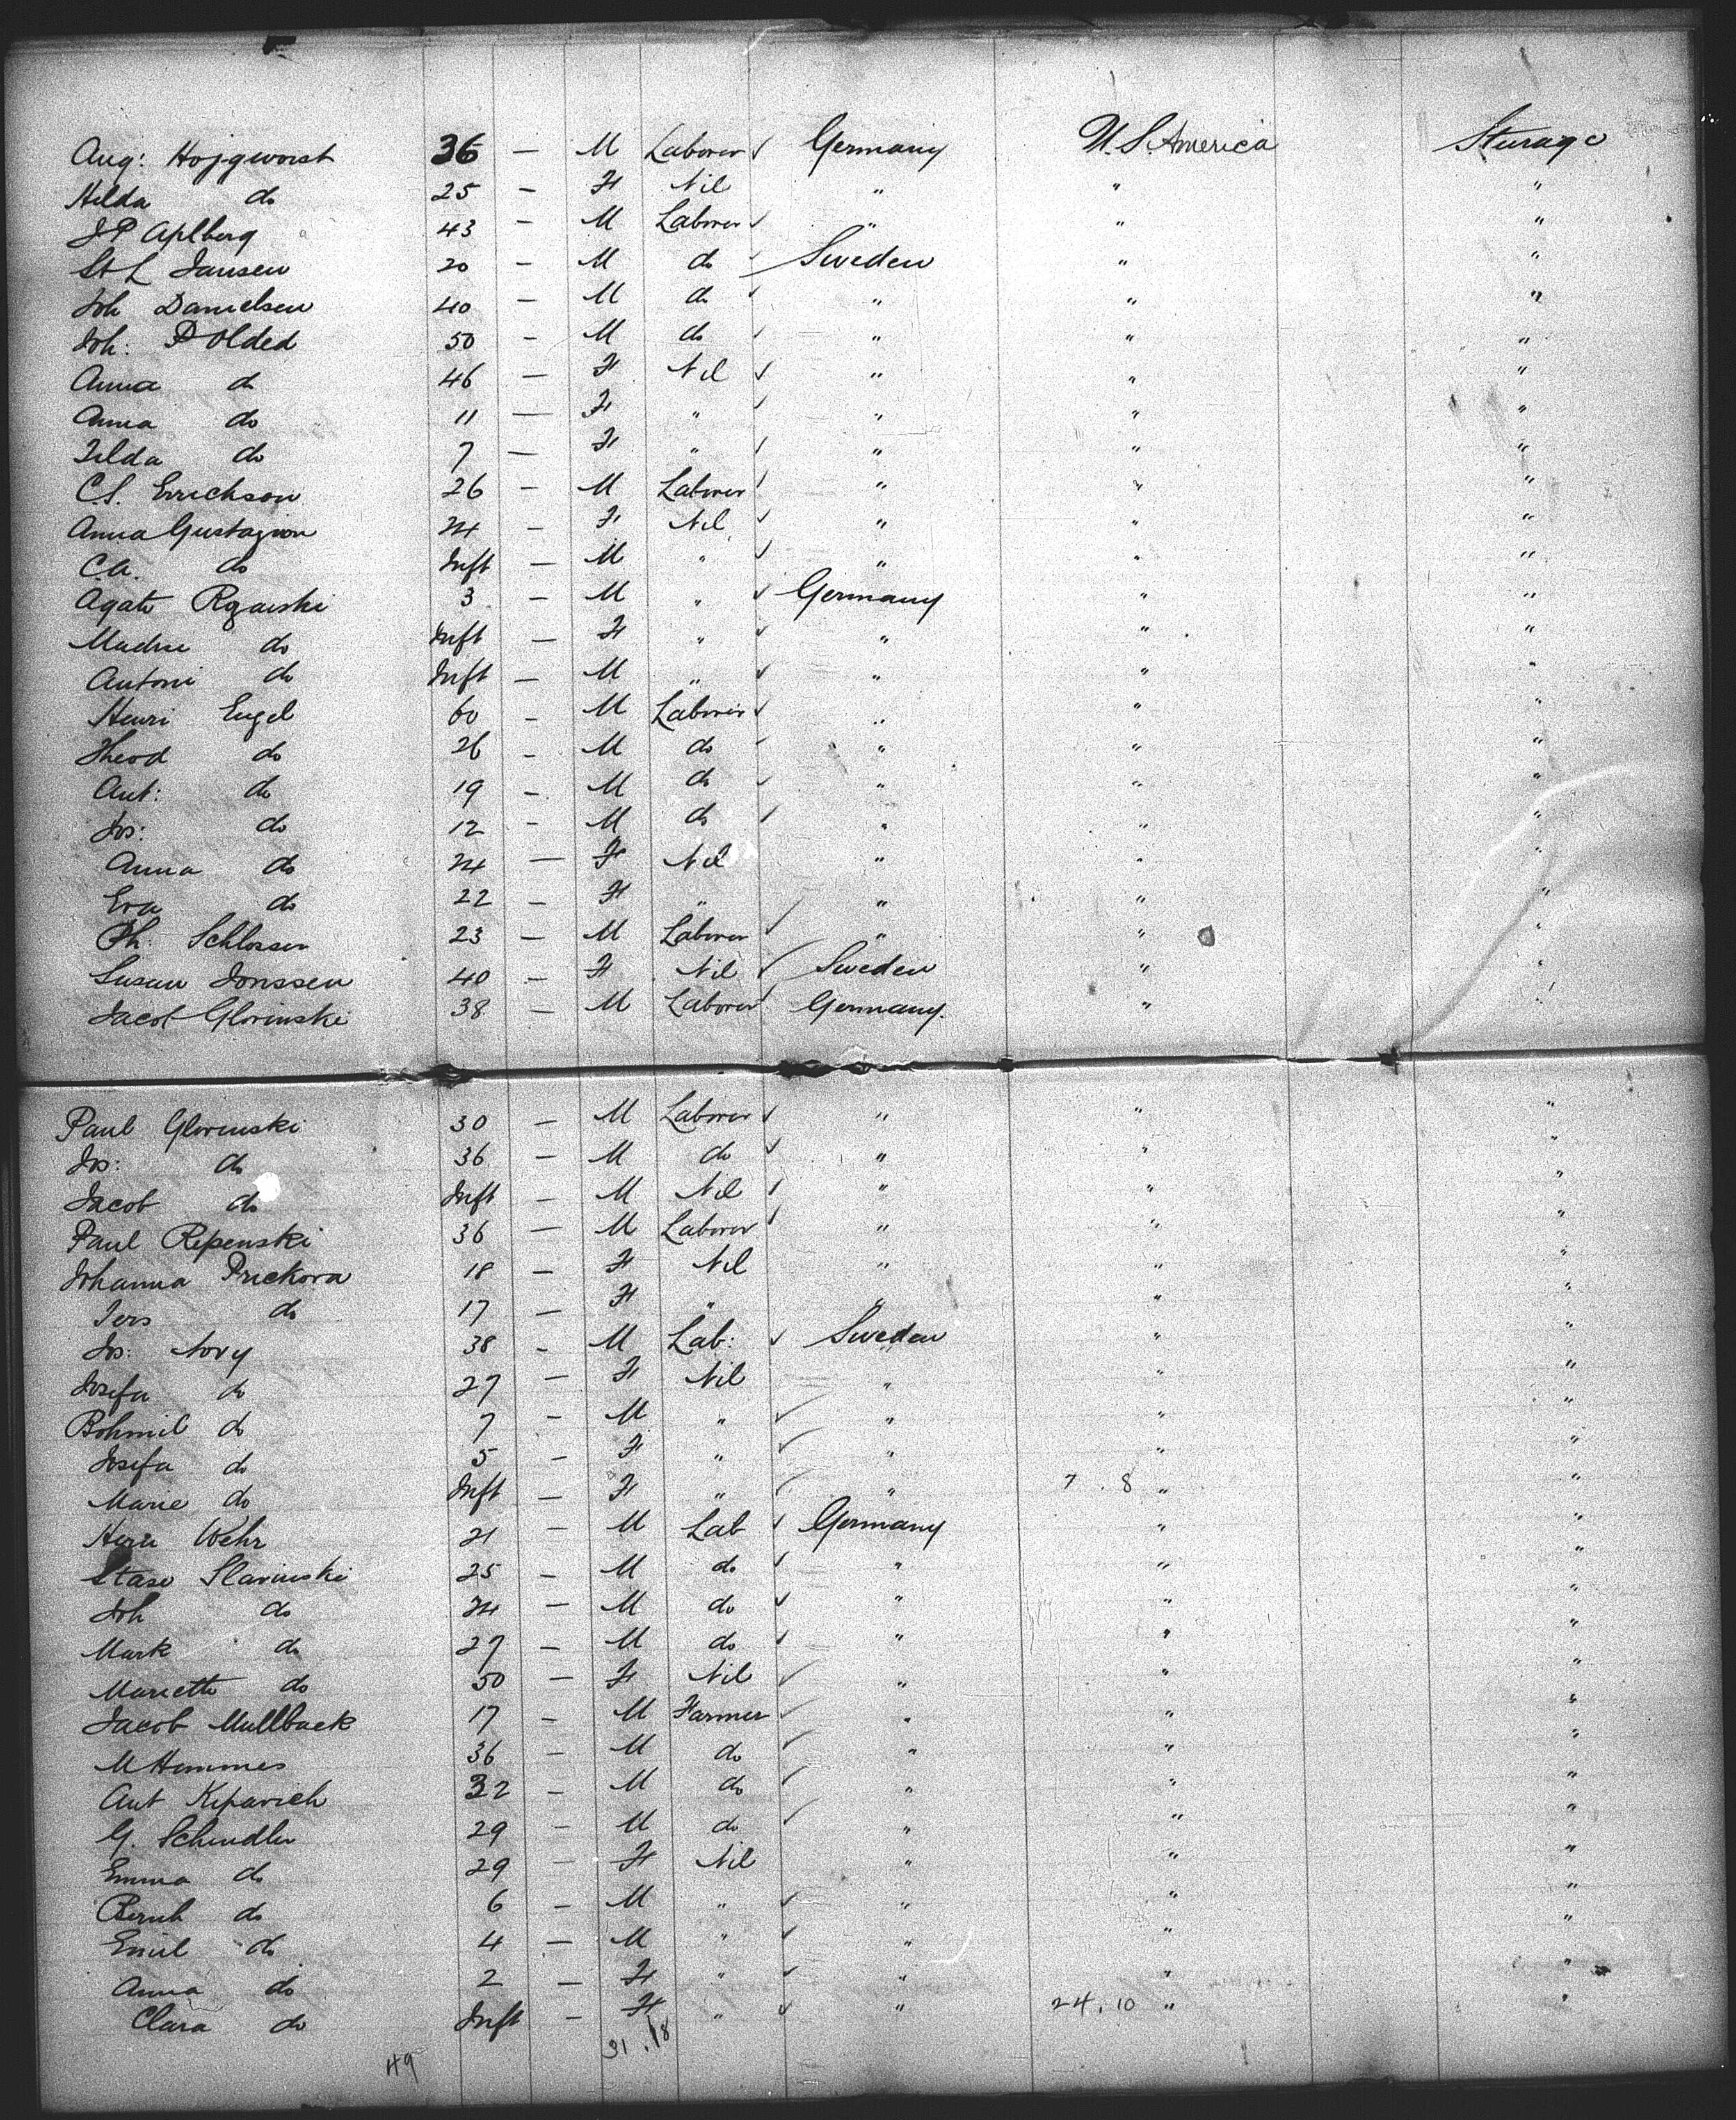 Aug: Hojgworst 36 — M Laborer ✓ Germany U.S. America Sturage
Hilda do 25 — F Nil " " "
J P Aplberg 43 — M Laborer ✓ " " "
St L Jansen 20 — M do ✓ Sweden " "
Joh Danielsen 40 — M do ✓ " " "
Joh: P Olded 50 — M do ✓ " " "
Anna do 46 — F Nil ✓ " " "
Anna do 11 — F " ✓ " " "
Tilda do 7 — F " ✓ " " "
C.S. Errichson 26 — M Laborer ✓ " " "
Anna Gustagson 24 — F Nil ✓ " " "
C.A. do Inft — M " ✓ " " "
Agate Rganski 3 — M " ✓ Germany " "
do Inft — F " ✓ " " "
Antoni do Inft — M " ✓ " " "
Henri Engel 60 — M Laborer ✓ " " "
Theod do 26 — M do ✓ " " "
Ant: do 19 — M do ✓ " " "
Jos: do 12 — M do ✓ " " "
Anna do 24 — F Nil " " "
Eva do 22 — F " ✓ " " "
Ph: Schlosser 23 — M Laborer ✓ " " "
Susan Jonssen 40 — F Nil ✓ Sweden " "
Jacob Glovinski 38 — M Laborer ✓ Germany. " "
Paul Glovinski 30 — M Laborer ✓ " " "
Jos: do 36 — M do ✓ " " "
Jacob do Inft — M Nil ✓ " " "
Paul Repenski 36 — M Laborer ✓ " " "
Johanna Prickova 18 — F Nil " " "
Ters do 17 — F " " " "
Jos: Novy 38 — M Lab: ✓ Sweden " "
Josefa do 27 — F Nil " " "
Bohmil do 7 — M " ✓ " " "
Josefa do 5 — F " ✓ " " "
Marie do Inft — F " ✓ " 7 . 8 " "
Wehr 21 — M Lab ✓ Germany " "
Staso Slavinski 25 — M do ✓ " " "
Joh do 24 — M do ✓ " " "
Mark do 27 — M do ✓ " " "
Mariette do 50 — F Nil ✓ " " "
Jacob Mullback 17 — M Farmer ✓ " " "
M Hemmes 36 — M do ✓ " " "
Ant Kiparich 32 — M do ✓ " " "
G. Schindler 29 — M do ✓ " " "
Emma do 29 — F Nil " " "
Bernh do 6 — M " ✓ " " "
Emil do 4 — M " ✓ " " "
Anna do 2 — F " ✓ " " "
Clara do Inft — F " ✓ " 24 . 10 " "
49 31 . 18